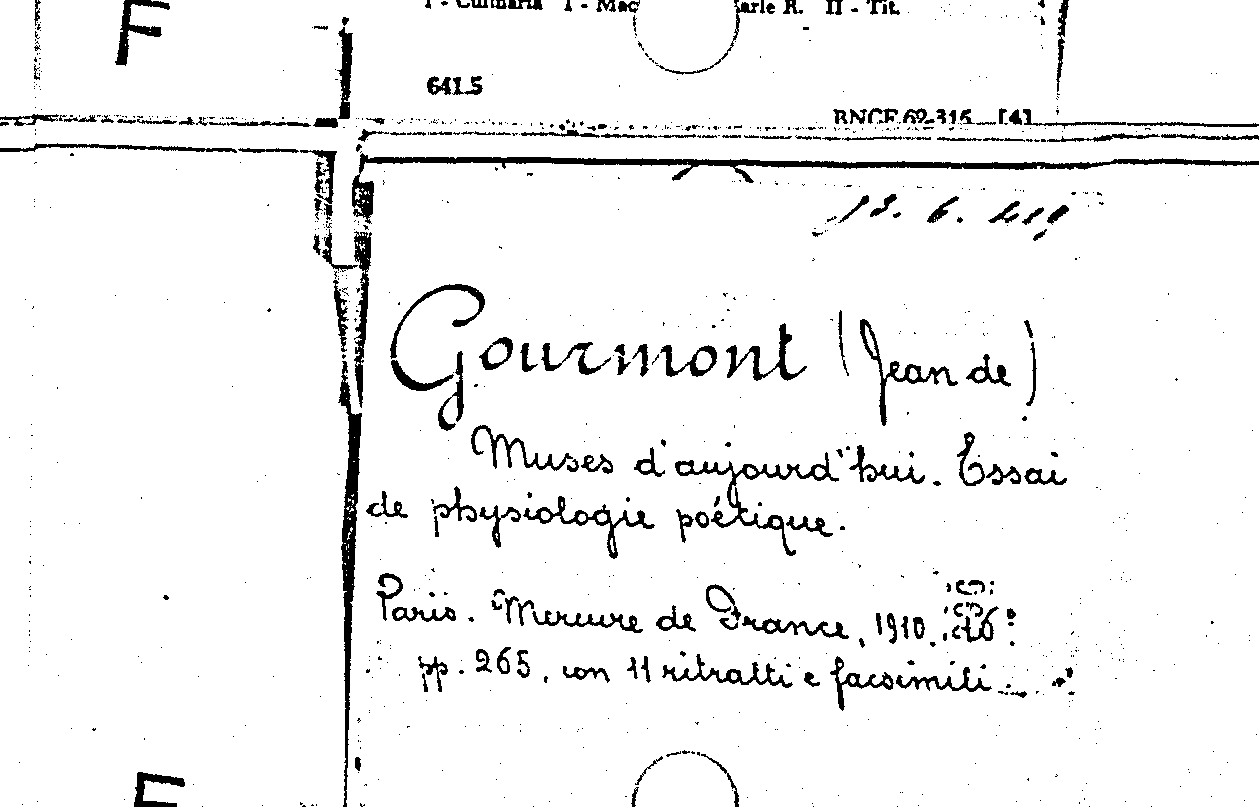 F
I - Culinaria I - Mac arle R. II - Tit.
641.5
BNCF 62-316 [4]
13. 6. 419
Gourmont (Jean de)
Muses d'aujourd'hui. Essai
de physiologie poétique.
Paris. Mercure de France, 1910. 16°.
pp. 265, con 11 ritratti e facsimili